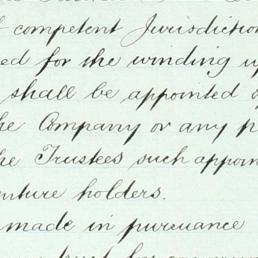 f competent Jurisdiction
ed for the winding up
shall be appointed o
the Company or any p
he Trustees such appoin
enture holders.
made in pursuance